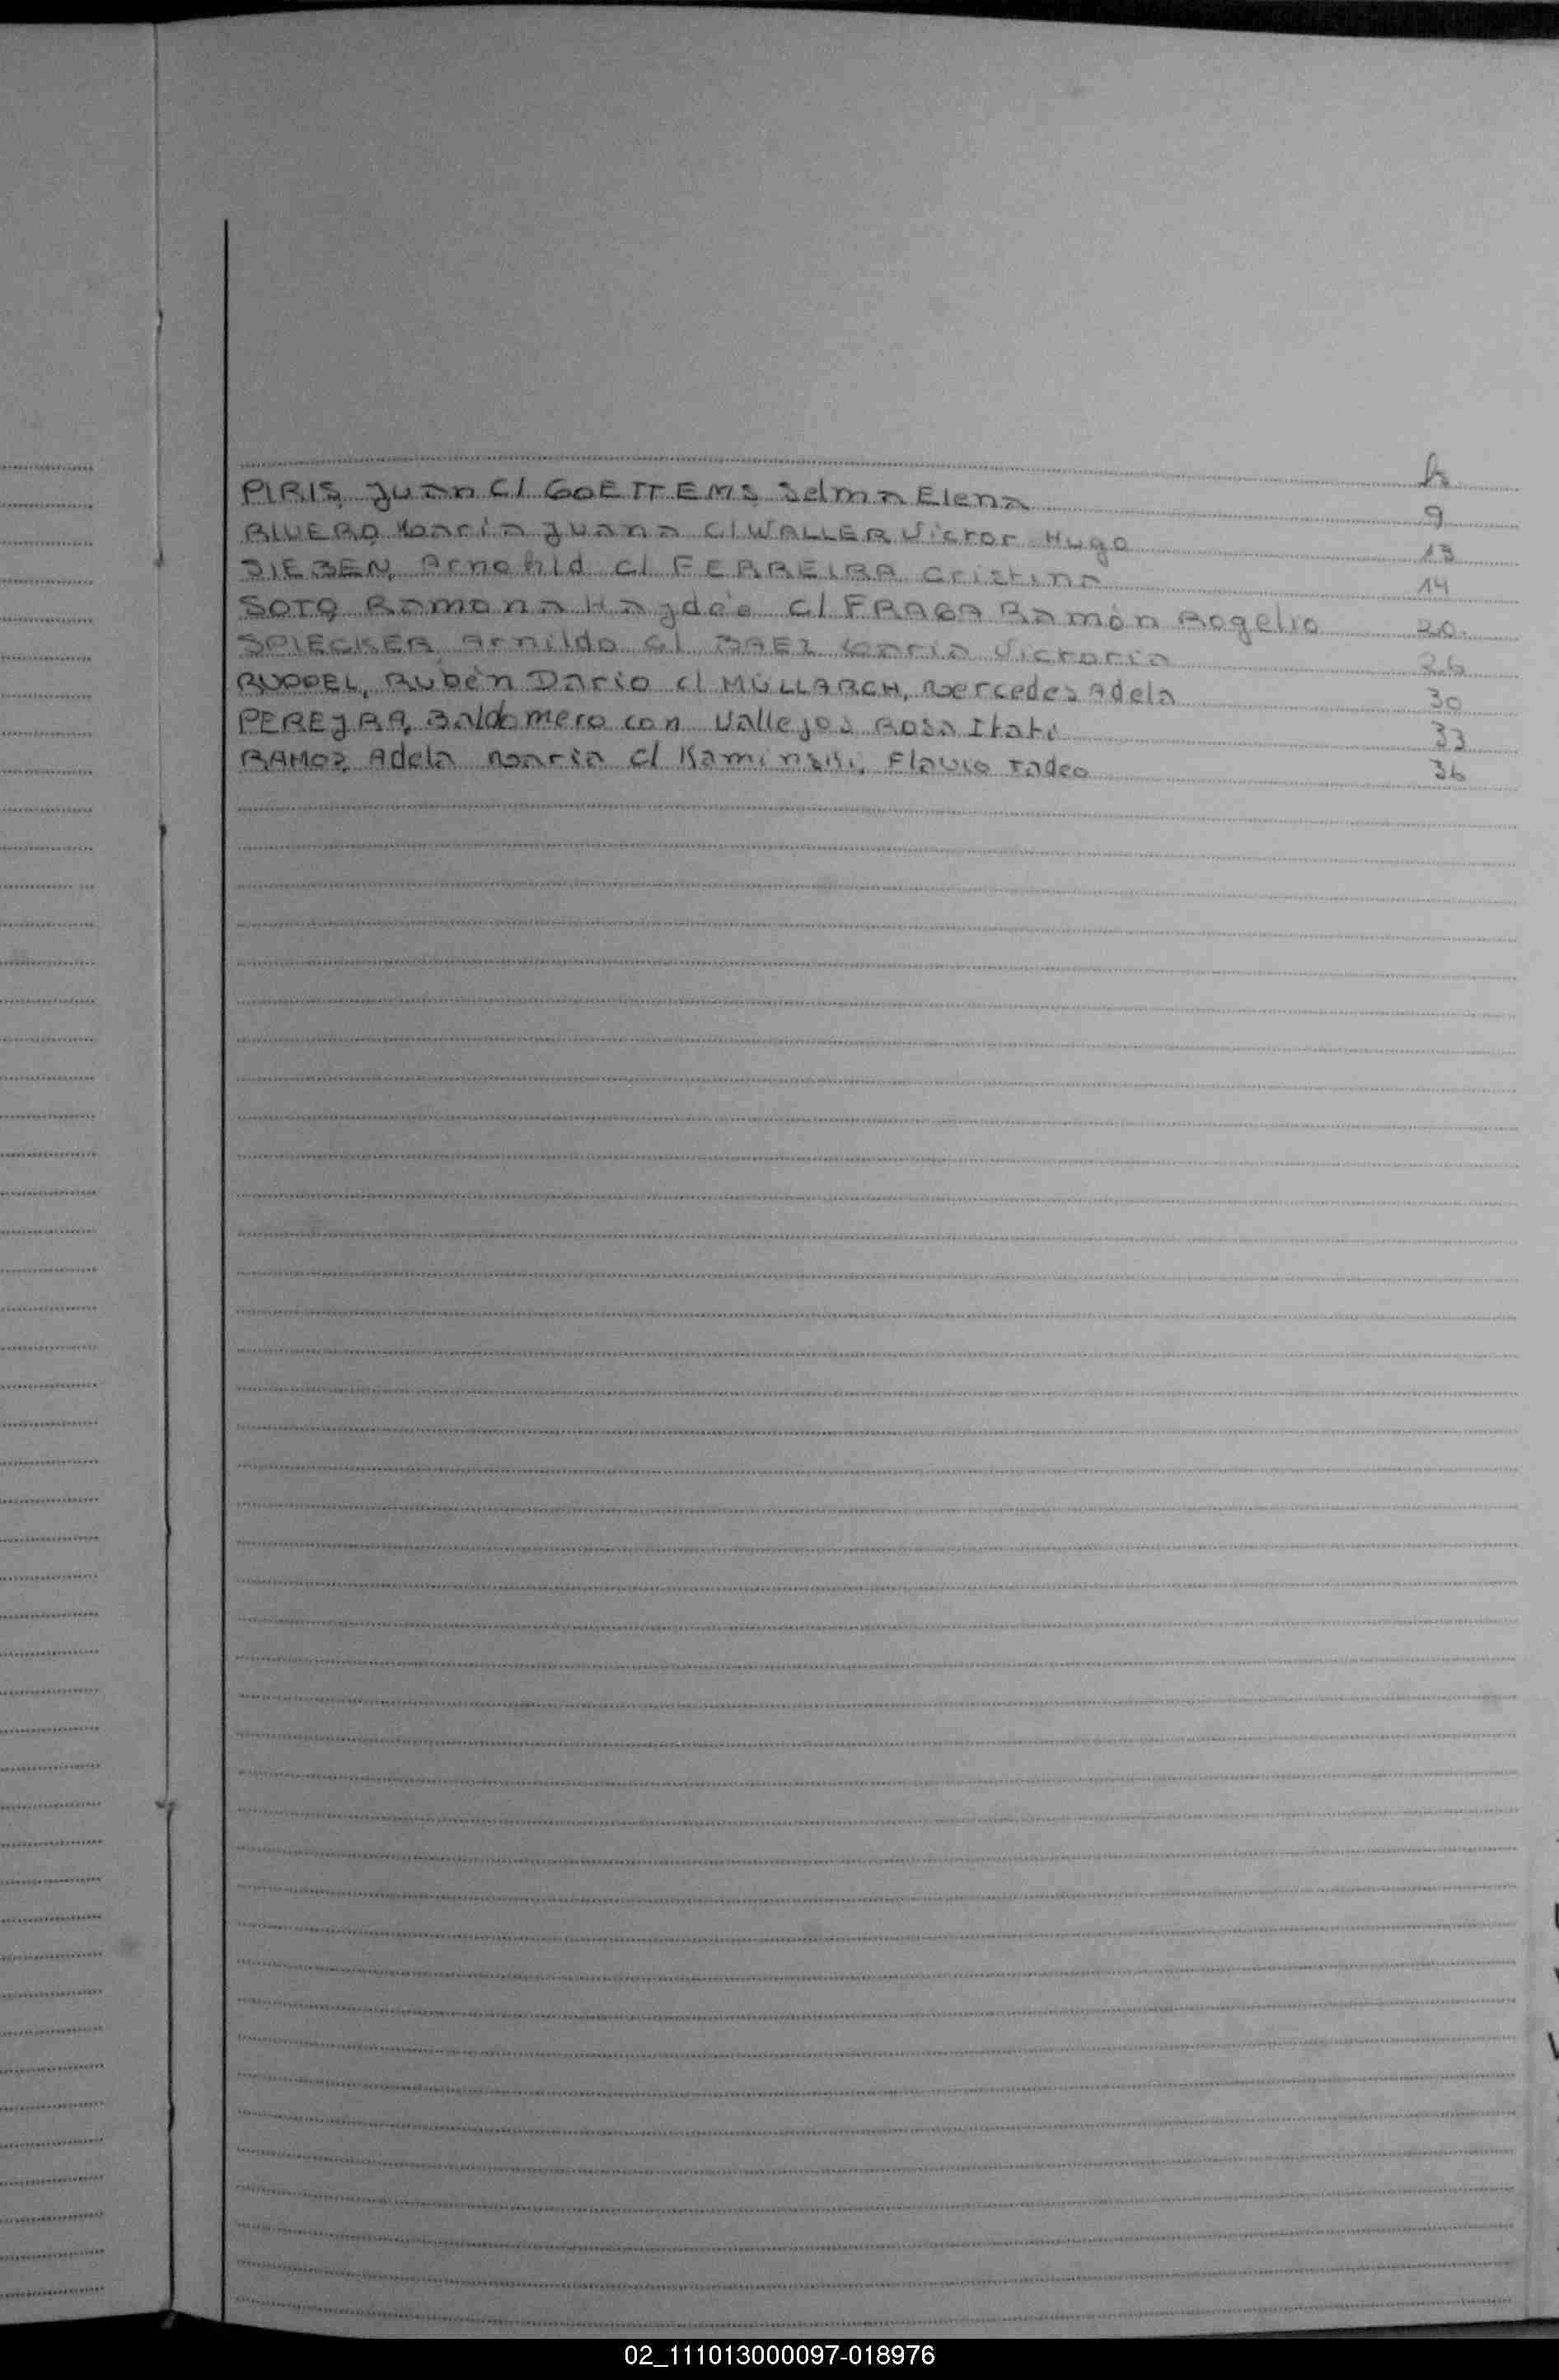 PIRIS, Juan C/ GOETTEMS Selma Elena 9
RIVERO, María Juana C/ WALLER Victor Hugo 13
SIEBEN, Arnohild C/ FERREIRA Cristina 14
SOTO, Ramona Haydée C/ FRAGA Ramón Rogelio 20
SPIECKER, Arnildo C/ BAEZ María Victoria 26
RUPPEL, Rubén Dario C/ MÜLLARCH, Mercedes Adela 30
PEREJRA, Baldomero con Vallejos Rosa Itati 33
RAMOZ, Adela Maria C/ Kaminski, Flavio Tadeo 36
02_111013000097-018976